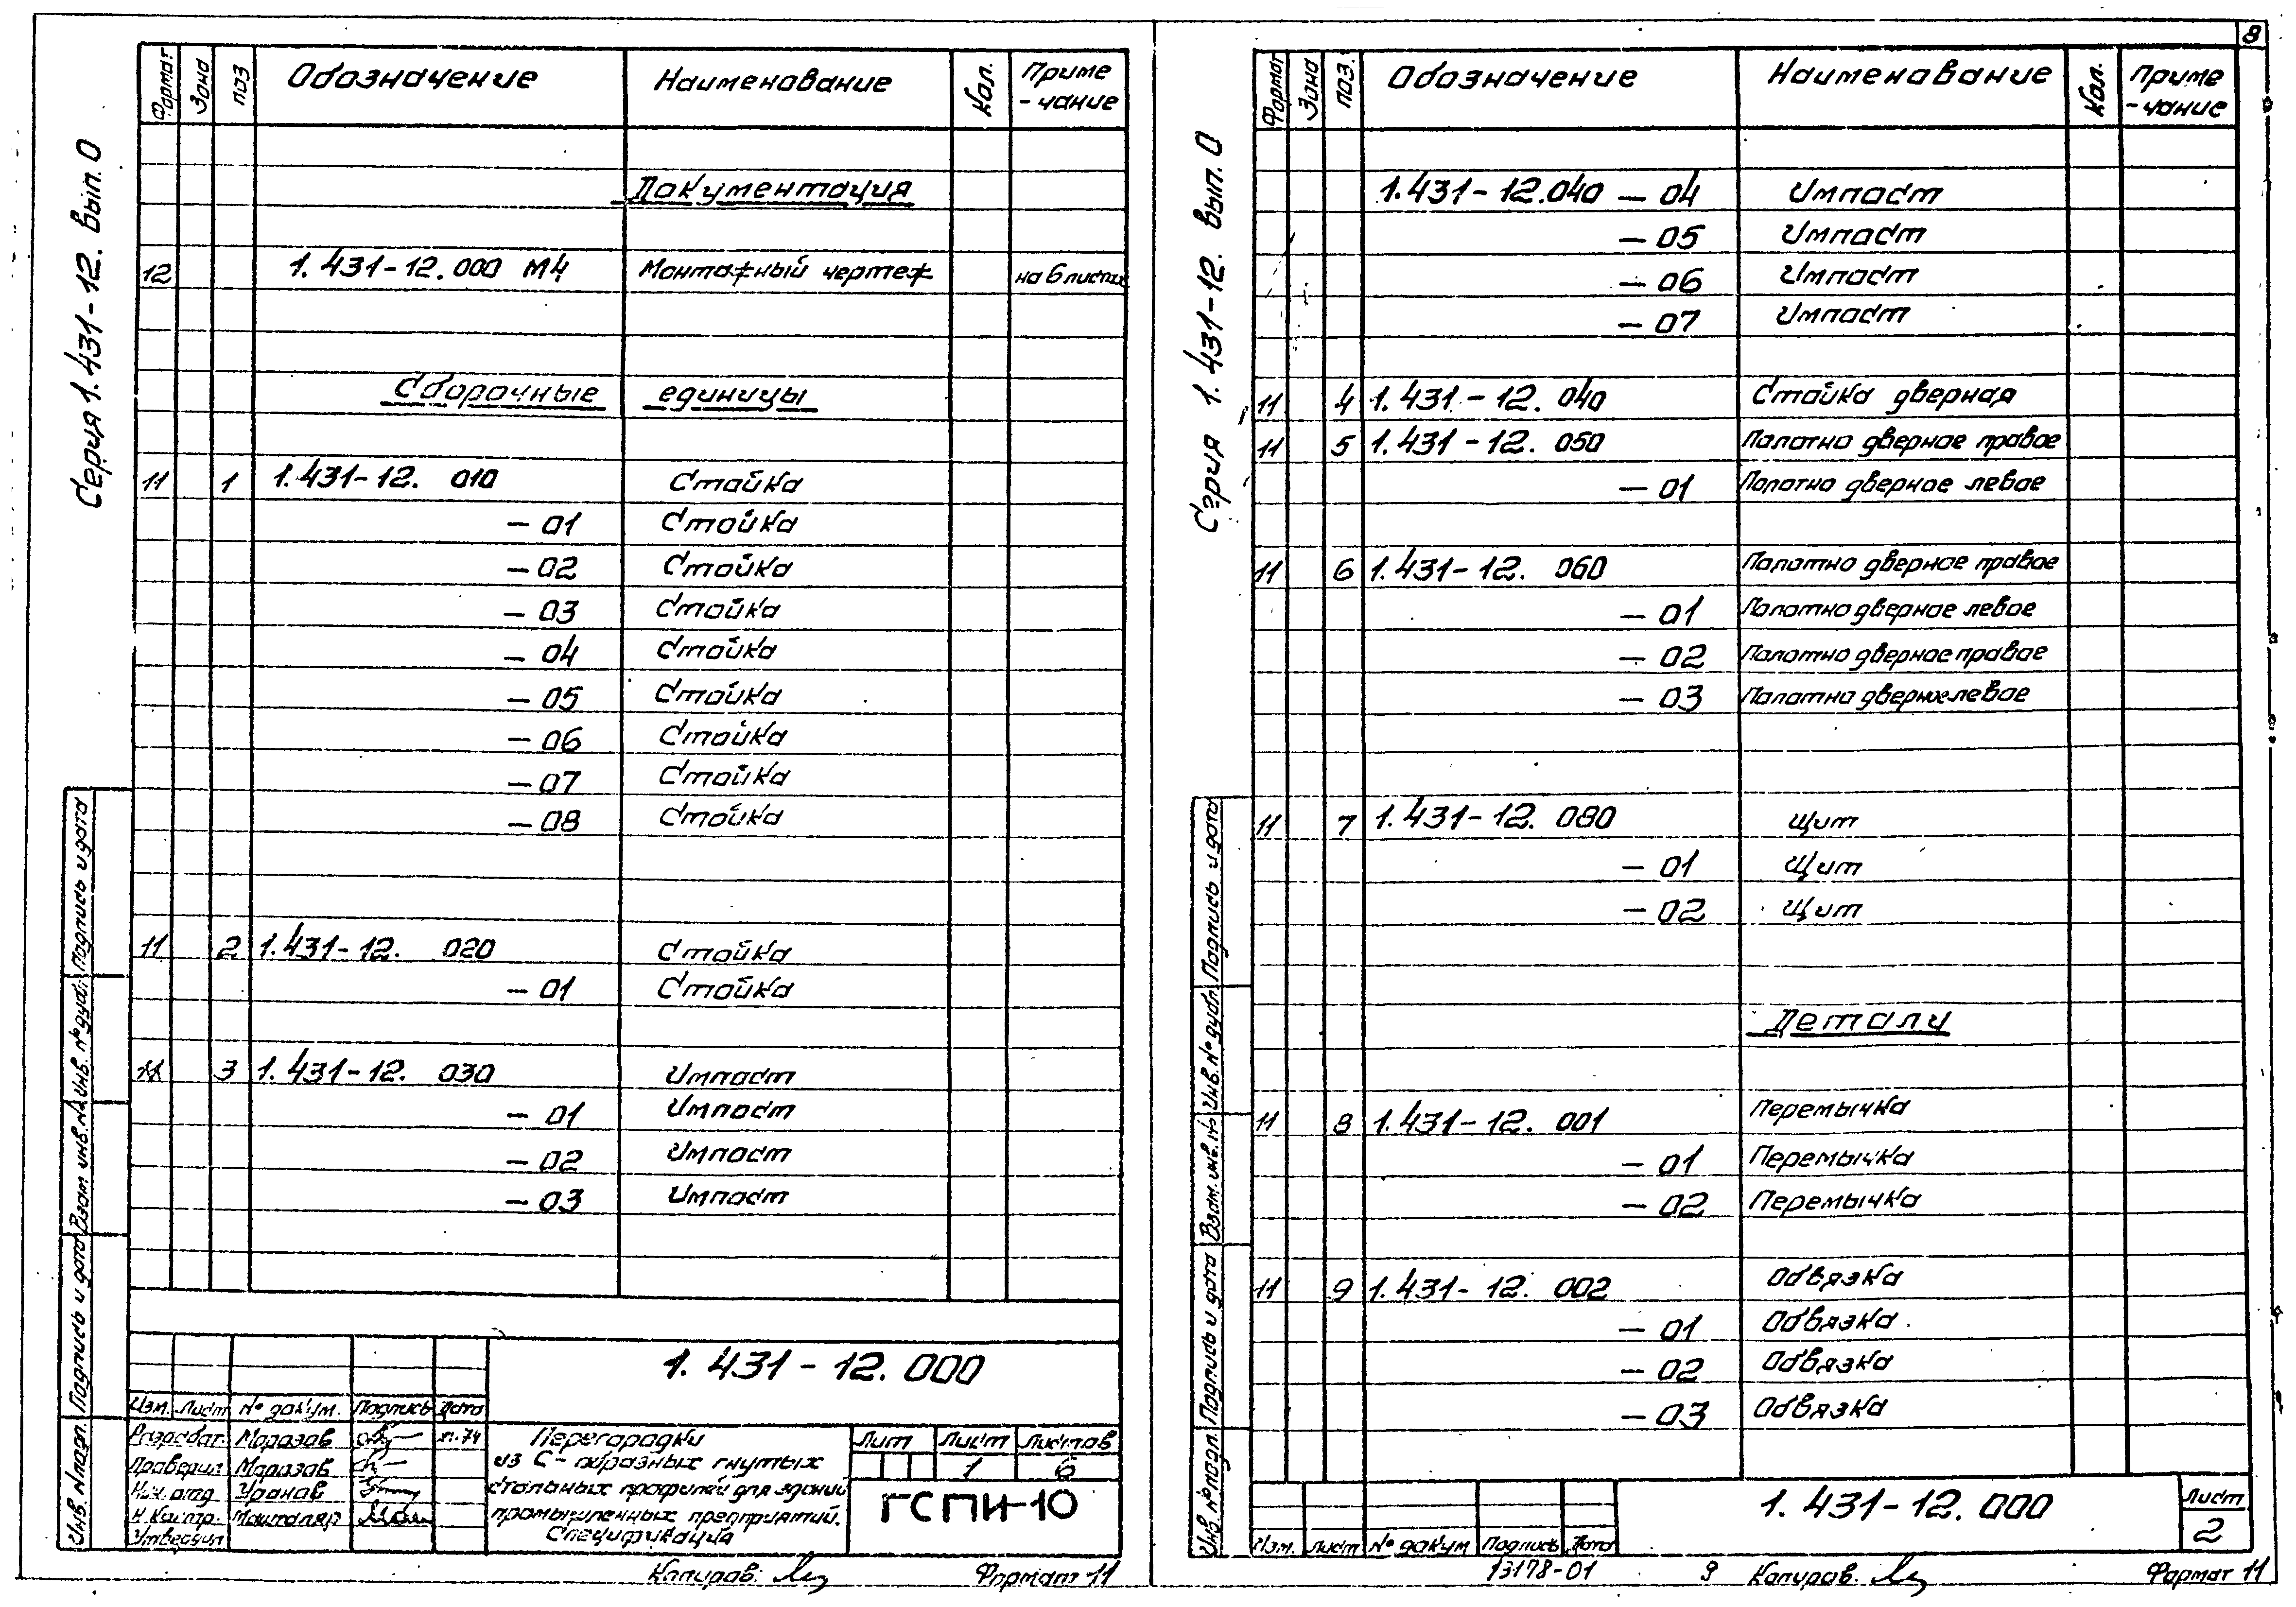 8
Серия 1.431-12. Вып. 0
Формат Зона поз Обозначение Наименование Кол. Приме-чание
Документация
12 1.431-12.000 М4 Монтажный чертеж на 6 листах
Сборочные единицы
11 1 1.431-12. 010 Стойка
— 01 Стойка
— 02 Стойка
— 03 Стойка
— 04 Стойка
— 05 Стойка
— 06 Стойка
— 07 Стойка
— 08 Стойка
11 2 1.431-12. 020 Стойка
— 01 Стойка
11 3 1.431-12. 030 Импост
— 01 Импост
— 02 Импост
— 03 Импост
Инв. № подл. Подпись и дата Взам инв. № Инв. № дубл. Подпись и дата
1.431-12.000
Изм. Лист № докум. Подпись Дата
Разработ. Морозов 74
Проверил Морозов
Нач. отд Уранов
Н. Контр.
Утвердил
Перегородки
из С-образных гнутых
стальных профилей для зданий
промышленных предприятий.
Спецификация
Лит Лист Листов
1 6
ГСПИ-10
Копиров. Формат 11
Серия 1.431-12. Вып. 0
Формат Зона поз. Обозначение Наименование Кол. Приме-чание
1.431-12.040 — 04 Импост
— 05 Импост
— 06 Импост
— 07 Импост
11 4 1.431-12. 040 Стойка дверная
11 5 1.431-12. 050 Полотно дверное правое
— 01 Полотно дверное левое
11 6 1.431-12. 060 Полотно дверное правое
— 01 Полотно дверное левое
— 02 Полотно дверное правое
— 03 Полотно дверное левое
11 7 1.431-12. 080 Щит
— 01 Щит
— 02 Щит
Детали
11 8 1.431-12. 001 Перемычка
— 01 Перемычка
— 02 Перемычка
11 9 1.431-12. 002 Обвязка
— 01 Обвязка
— 02 Обвязка
— 03 Обвязка
Инв. № подл. Подпись и дата Взам. инв. № Инв. № дубл. Подпись и дата
1.431-12.000
Лист
2
Изм. Лист № докум Подпись Дата
13178-01 9 Копиров. Формат 11